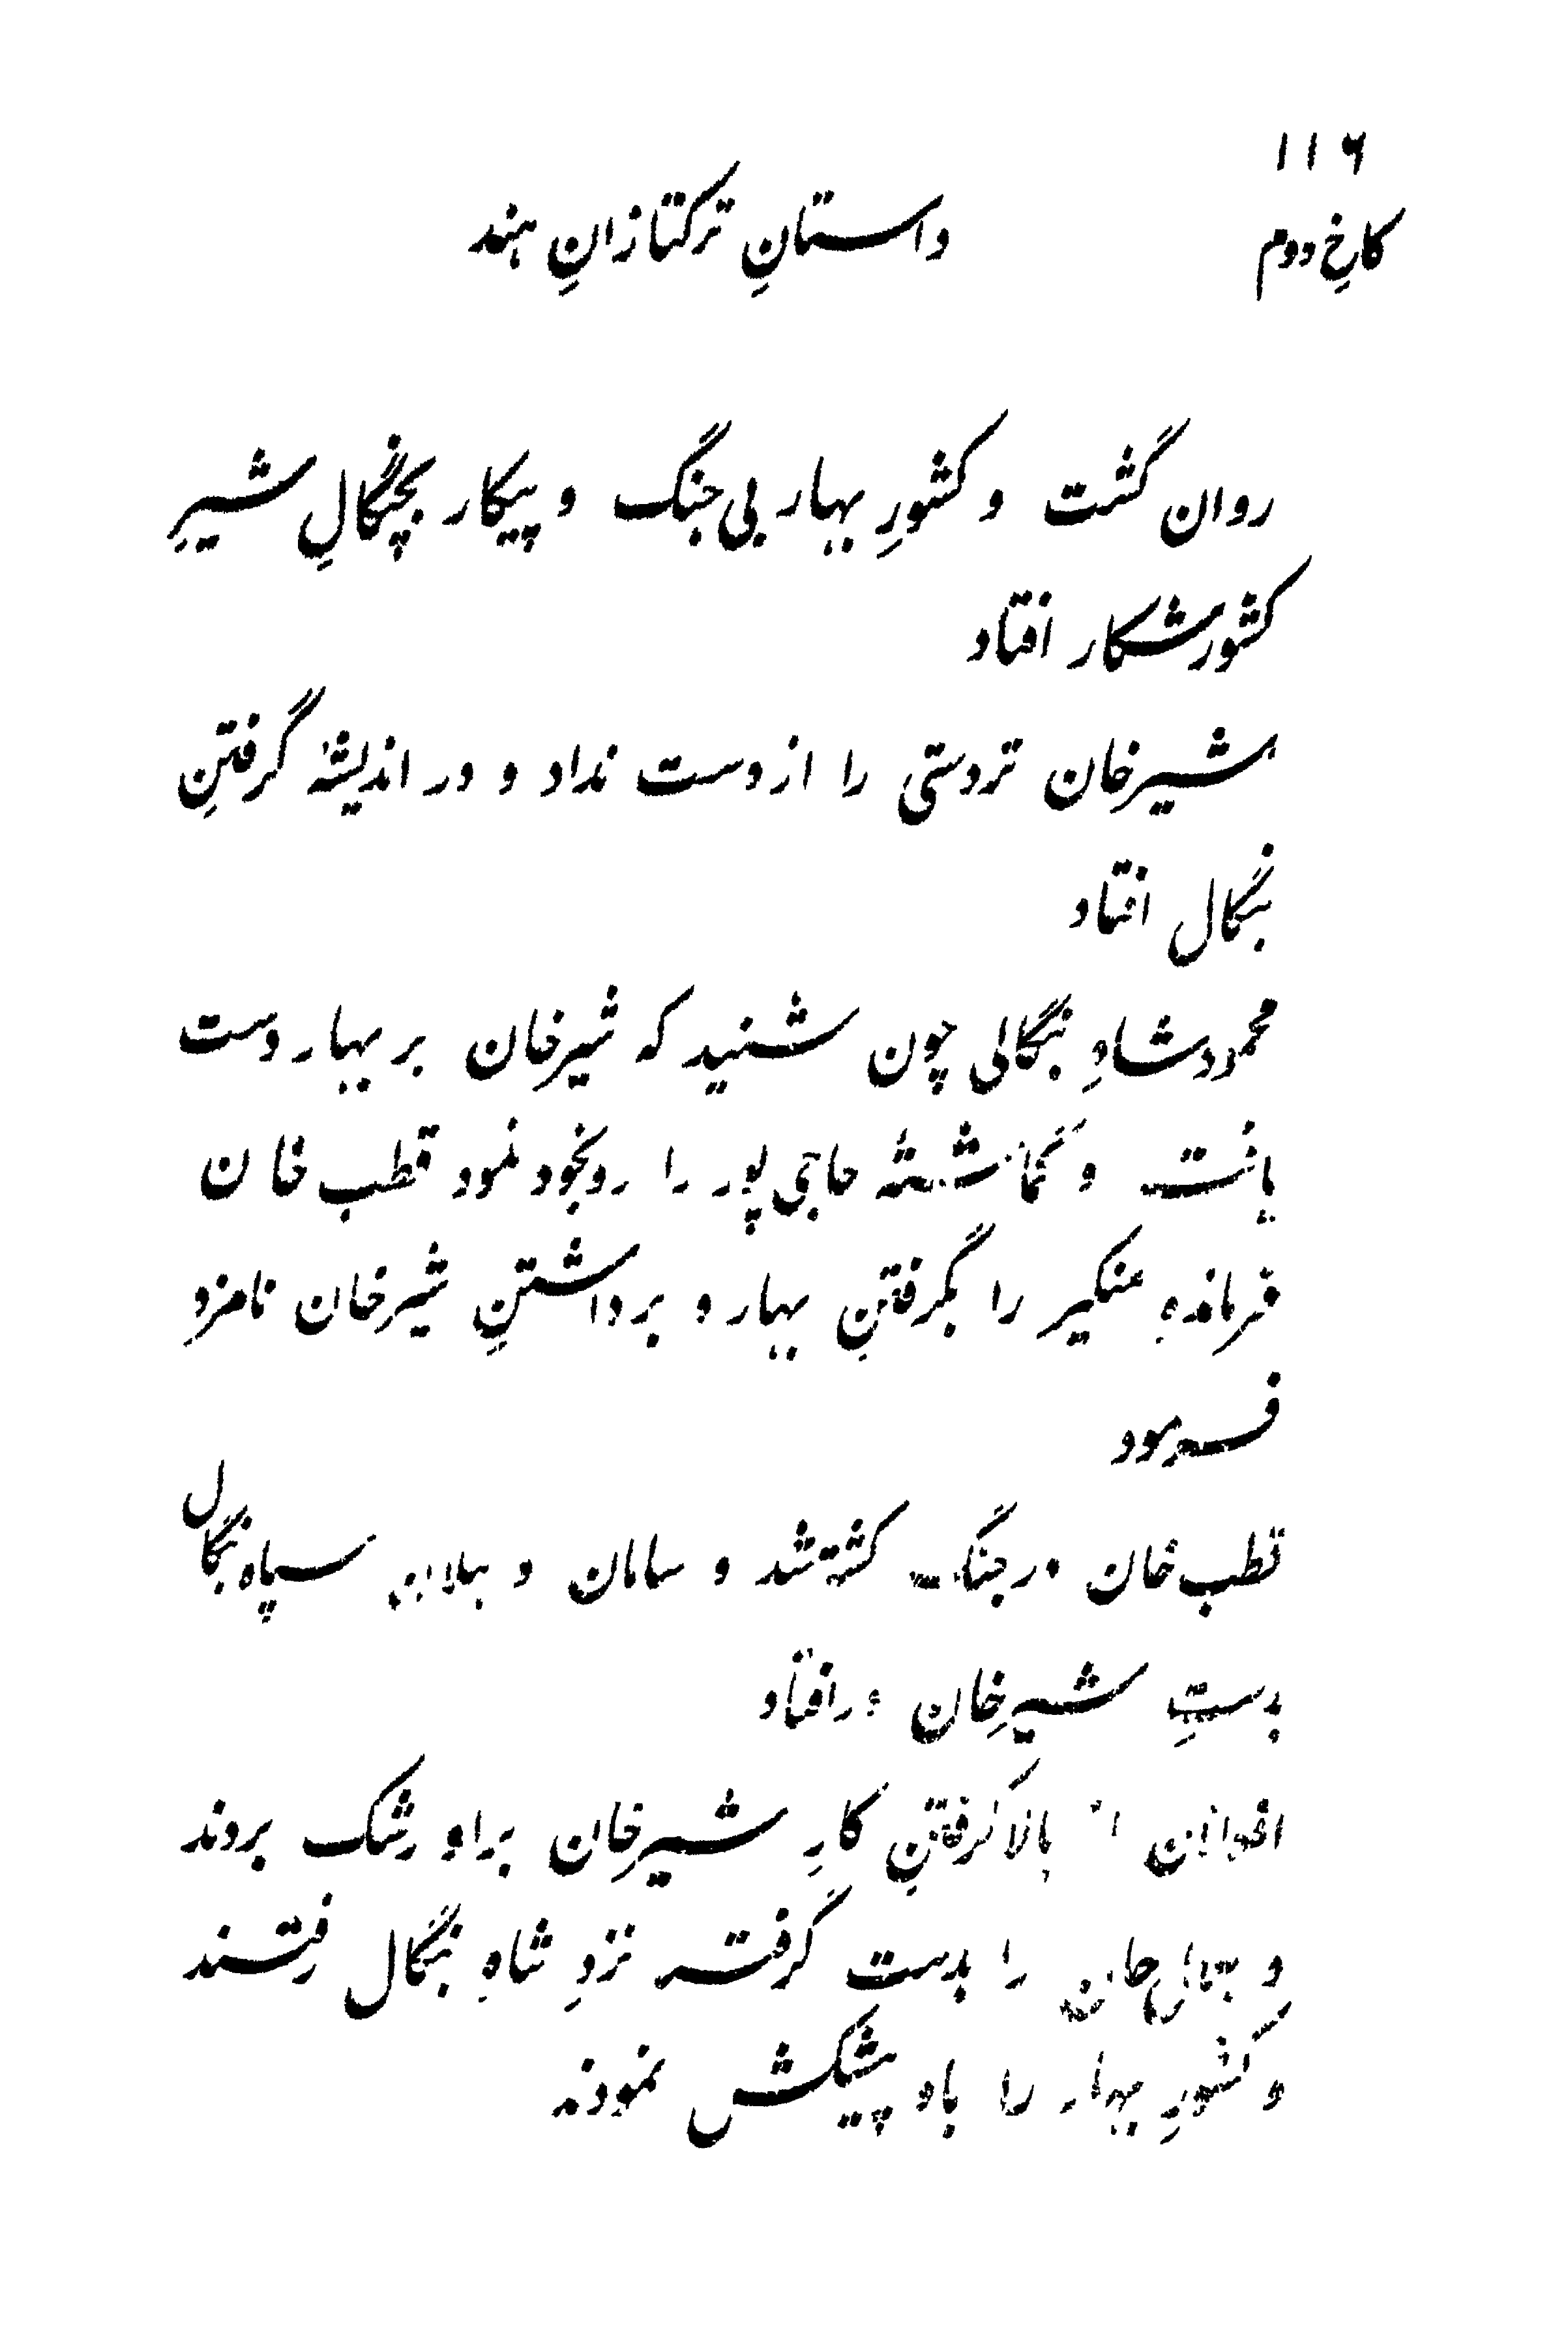 ۱۱۶
کاخِ دوم
داستانِ ترکتازانِ هند
روان گشت و کشورِ بهار بی جنگ و پیکار بچنگالِ شیرِ
کشورشکار افتاد
شیرخان تردستی را از دست نداد و در اندیشهٔ گرفتنِ
بنگال افتاد
محمودشاهِ بنگالی چون شنید که شیرخان بر بهار دست
یافت و گماشتهٔ حاجی پور را روبخود نمود قطب خان
فرماندهِ منگیر را بگرفتنِ بهار و برداشتنِ شیرخان نامزد
فرمود
قطب خان در جنگ کشته شد و سامان و سپاه بنگال
بدستِ شیرخان درافتاد
افغانان از بالا گرفتنِ کارِ شیرخان براو رشک بردند
و را بدست گرفته نزدِ شاهِ بنگال رفتند
و کشورِ بهار را باو پیشکش نمودند